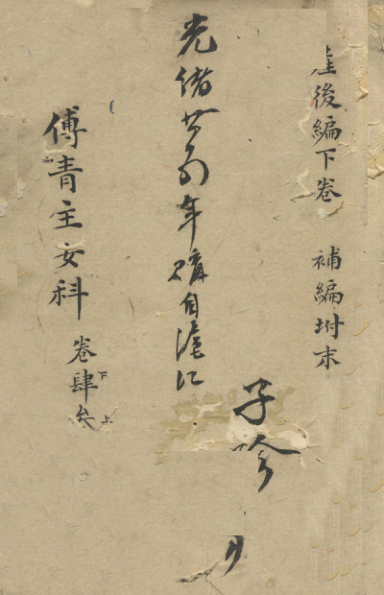 產後編下卷 補編坿末
光緒廿四年購自滬江
子吟
傅青主女科 卷肆下